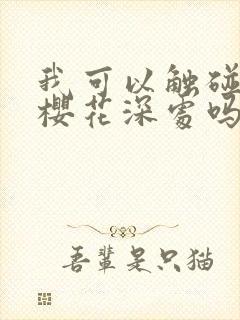 我可以触碰
樱花深处吗
吾辈是只猫